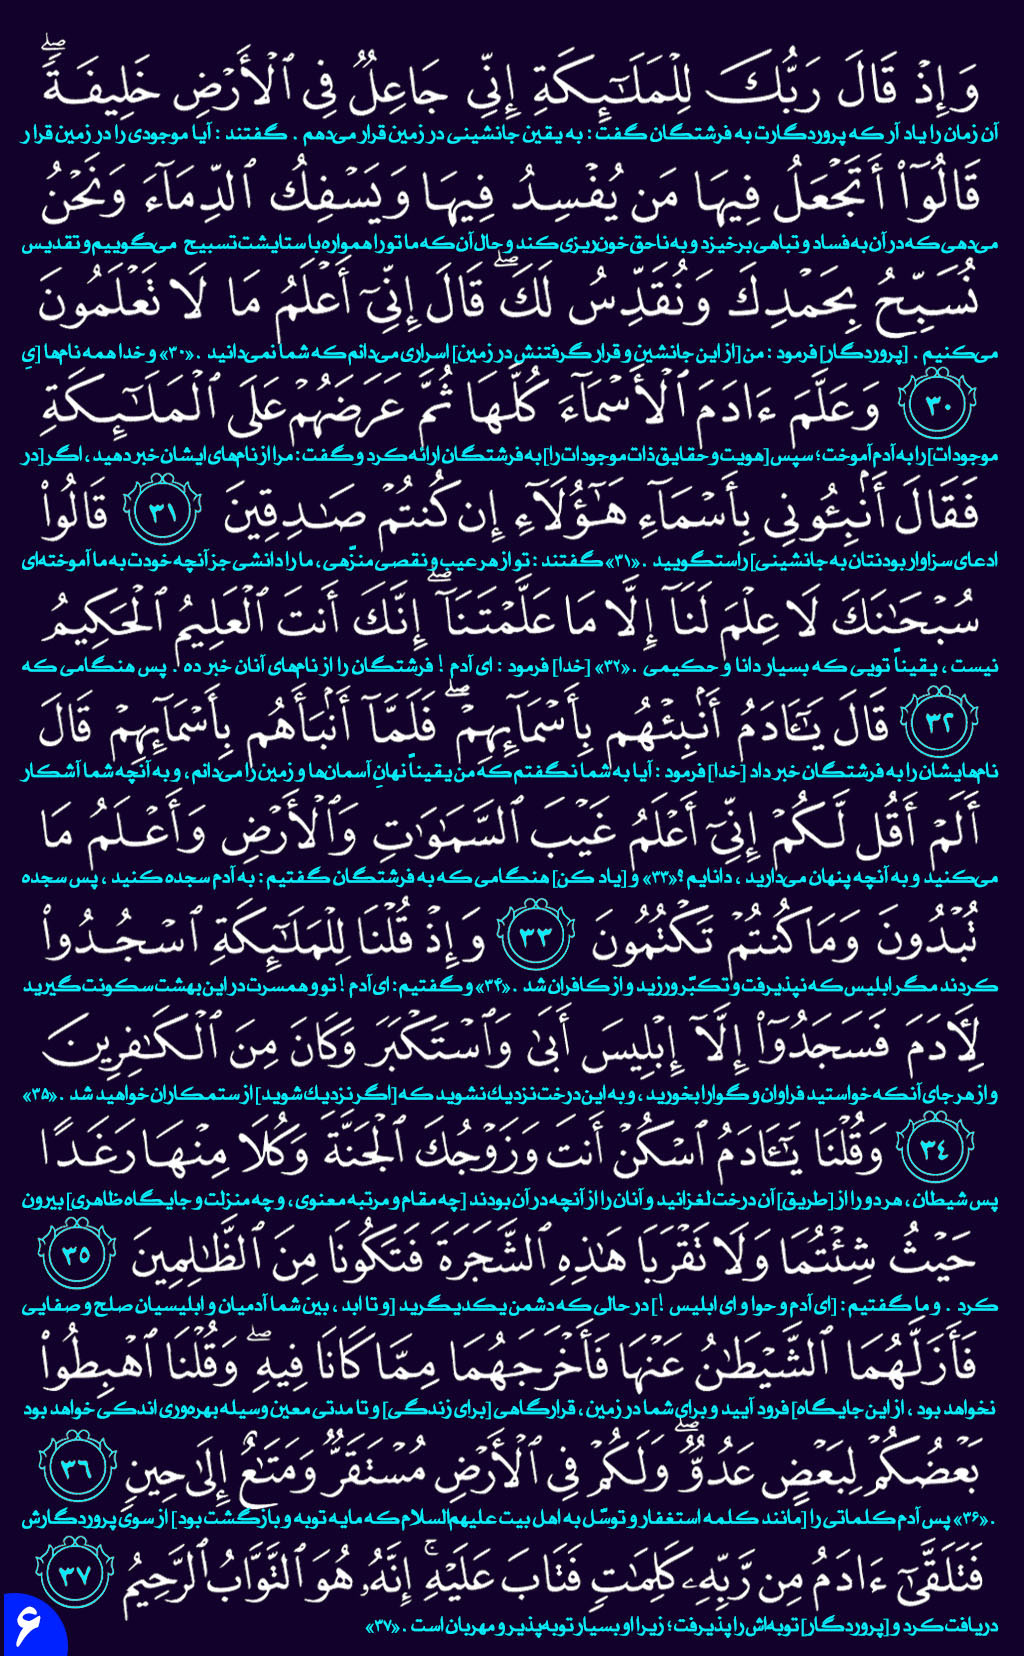 وَإِذْ قَالَ رَبُّكَ لِلْمَلَٰٓئِكَةِ إِنِّي جَاعِلٌ فِي ٱلْأَرْضِ خَلِيفَةًۖ
آن زمان را یاد آر که پروردگارت به فرشتگان گفت : به یقین جانشینی در زمین قرار می‌دهم . گفتند : آیا موجودی را در زمین قرار
قَالُوٓا۟ أَتَجْعَلُ فِيهَا مَن يُفْسِدُ فِيهَا وَيَسْفِكُ ٱلدِّمَآءَ وَنَحْنُ
می‌دهی که در آن به فساد و تباهی برخیزد و به ناحق خون‌ریزی کند و حال آن که ما تو را همواره با ستایشت تسبیح می‌گوییم و تقدیس
نُسَبِّحُ بِحَمْدِكَ وَنُقَدِّسُ لَكَۖ قَالَ إِنِّيٓ أَعْلَمُ مَا لَا تَعْلَمُونَ
می‌کنیم . [پروردگار] فرمود : من [از این جانشین و قرار گرفتنش در زمین] اسراری می‌دانم که شما نمی‌دانید .«۳۰» و خدا همه نام‌ها [یِ
٣٠ وَعَلَّمَ ءَادَمَ ٱلْأَسْمَآءَ كُلَّهَا ثُمَّ عَرَضَهُمْ عَلَى ٱلْمَلَٰٓئِكَةِ
موجودات] را به آدم آموخت ؛ سپس [هویت و حقایق ذات موجودات را] به فرشتگان ارائه کرد و گفت : مرا از نام‌های ایشان خبر دهید ، اگر [در
فَقَالَ أَنۢبِـُٔونِي بِأَسْمَآءِ هَٰٓؤُلَآءِ إِن كُنتُمْ صَٰدِقِينَ ٣١ قَالُوا۟
ادعای سزاوار بودنتان به جانشینی] راستگویید .«۳۱» گفتند : تو از هر عیب و نقصی منزّهی ، ما را دانشی جز آنچه خودت به ما آموخته‌ای
سُبْحَٰنَكَ لَا عِلْمَ لَنَآ إِلَّا مَا عَلَّمْتَنَآۖ إِنَّكَ أَنتَ ٱلْعَلِيمُ ٱلْحَكِيمُ
نیست ، یقیناً تویی که بسیار دانا و حکیمی .«۳۲» [خدا] فرمود : ای آدم ! فرشتگان را از نام‌های آنان خبر ده . پس هنگامی که
٣٢ قَالَ يَٰٓـَٔادَمُ أَنۢبِئْهُم بِأَسْمَآئِهِمْۖ فَلَمَّآ أَنۢبَأَهُم بِأَسْمَآئِهِمْ قَالَ
نام‌هایشان را به فرشتگان خبر داد [خدا] فرمود : آیا به شما نگفتم که من یقیناً نهانِ آسمان‌ها و زمین را می‌دانم ، و به آنچه شما آشکار
أَلَمْ أَقُل لَّكُمْ إِنِّيٓ أَعْلَمُ غَيْبَ ٱلسَّمَٰوَٰتِ وَٱلْأَرْضِ وَأَعْلَمُ مَا
می‌کنید و به آنچه پنهان می‌دارید ، دانایم ؟«۳۳» و [یاد کن] هنگامی که به فرشتگان گفتیم : به آدم سجده کنید ، پس سجده
تُبْدُونَ وَمَا كُنتُمْ تَكْتُمُونَ ٣٣ وَإِذْ قُلْنَا لِلْمَلَٰٓئِكَةِ ٱسْجُدُوا۟
کردند مگر ابلیس که نپذیرفت و تکبّر ورزید و از کافران شد .«۳۴» و گفتیم : ای آدم ! تو و همسرت در این بهشت سکونت گیرید
لِـَٔادَمَ فَسَجَدُوٓا۟ إِلَّآ إِبْلِيسَ أَبَىٰ وَٱسْتَكْبَرَ وَكَانَ مِنَ ٱلْكَٰفِرِينَ
و از هر جای آنکه خواستید فراوان و گوارا بخورید ، و به این درخت نزدیك نشوید که [اگر نزدیك شوید] از ستمکاران خواهید شد .«۳۵»
٣٤ وَقُلْنَا يَٰٓـَٔادَمُ ٱسْكُنْ أَنتَ وَزَوْجُكَ ٱلْجَنَّةَ وَكُلَا مِنْهَا رَغَدًا
پس شیطان ، هر دو را از [طریق] آن درخت لغزانید و آنان را از آنچه در آن بودند [چه مقام و مرتبه معنوی ، و چه منزلت و جایگاه ظاهری] بیرون
حَيْثُ شِئْتُمَا وَلَا تَقْرَبَا هَٰذِهِ ٱلشَّجَرَةَ فَتَكُونَا مِنَ ٱلظَّٰلِمِينَ ٣٥
کرد . و ما گفتیم : [ای آدم و حوا و ای ابلیس !] در حالی که دشمن یکدیگرید [و تا ابد ، بین شما آدمیان و ابلیسیان صلح و صفایی
فَأَزَلَّهُمَا ٱلشَّيْطَٰنُ عَنْهَا فَأَخْرَجَهُمَا مِمَّا كَانَا فِيهِۖ وَقُلْنَا ٱهْبِطُوا۟
نخواهد بود ، از این جایگاه] فرود آیید و برای شما در زمین ، قرارگاهی [برای زندگی] و تا مدتی معین وسیله بهره‌وری اندکی خواهد بود
بَعْضُكُمْ لِبَعْضٍ عَدُوٌّۖ وَلَكُمْ فِي ٱلْأَرْضِ مُسْتَقَرٌّ وَمَتَٰعٌ إِلَىٰ حِينٍ ٣٦
.«۳۶» پس آدم کلماتی را [مانند کلمه استغفار و توسّل به اهل بیت علیهم‌السلام که مایه توبه و بازگشت بود] از سویِ پروردگارش
فَتَلَقَّىٰٓ ءَادَمُ مِن رَّبِّهِۦ كَلِمَٰتٍ فَتَابَ عَلَيْهِۚ إِنَّهُۥ هُوَ ٱلتَّوَّابُ ٱلرَّحِيمُ ٣٧
دریافت کرد و [پروردگار] توبه‌اش را پذیرفت ؛ زیرا او بسیار توبه‌پذیر و مهربان است .«۳۷»
۶